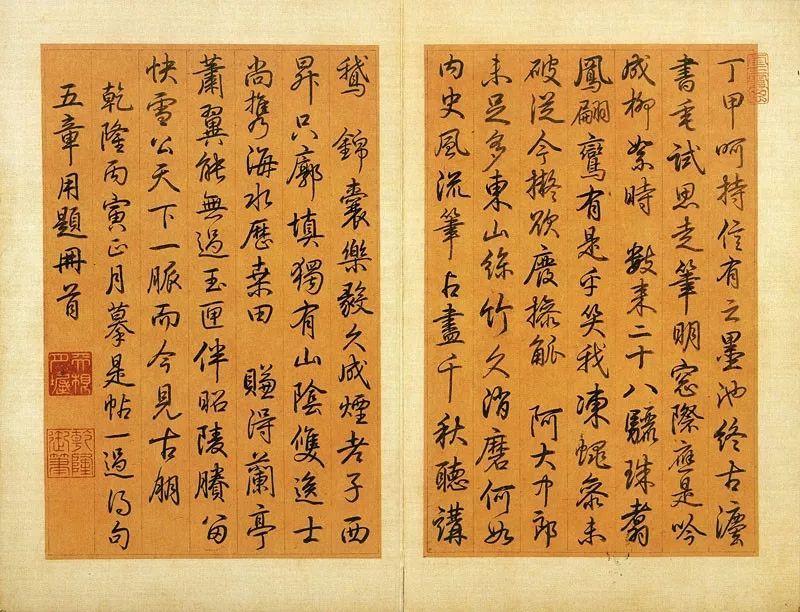 丁甲呵持信有之墨池終古
書垂試思走筆明窗際應是吟
成柳絮時　數來二十八驪珠翥
鳳翩鸞有是乎笑我凍蠅參未
破從今擬欲廢操觚　阿大中郎
未足多東山絲竹久消磨何如
內史風流筆占盡千秋聽講
鵝　錦囊樂毅久成煙老子西
昇只廓填獨有山陰雙逸士
尚攜海水歷桑田　賺得蘭亭
蕭翼能無過玉匣伴昭陵賸留
快雪公天下一脈而今見古朋
乾隆丙寅正月摹是帖一過得句
五章用題冊首
乾隆御筆